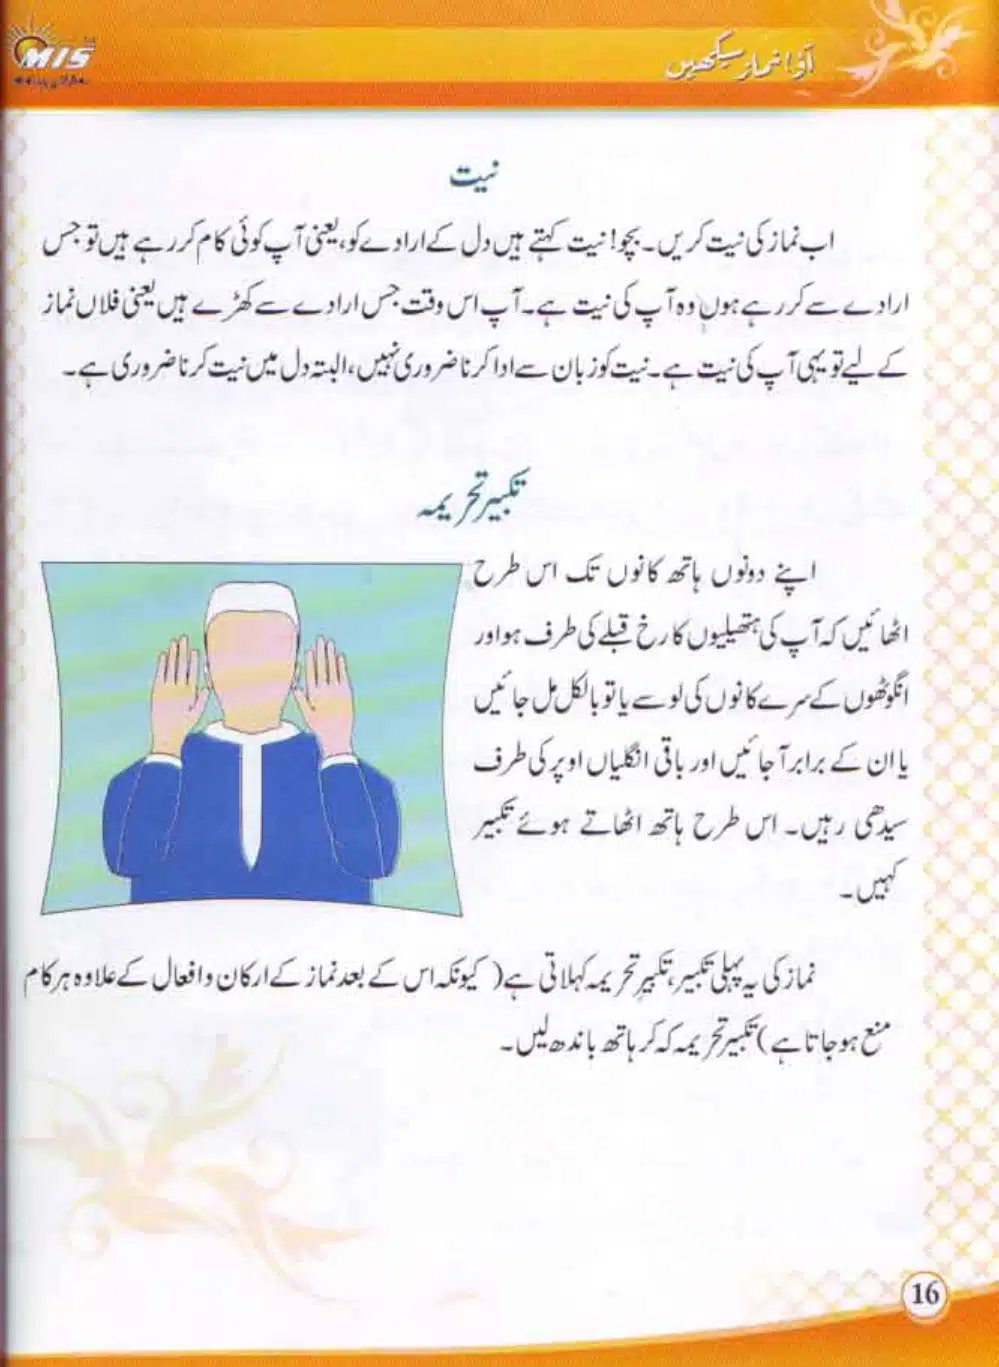 آؤ! نماز سیکھیں
MIS
نیت
اب نماز کی نیت کریں۔ بچو! نیت کہتے ہیں دل کے ارادے کو، یعنی آپ کوئی کام کر رہے ہیں تو جس
ارادے سے کر رہے ہوں وہ آپ کی نیت ہے۔ آپ اس وقت جس ارادے سے کھڑے ہیں یعنی فلاں نماز
کے لیے تو یہی آپ کی نیت ہے۔ نیت کو زبان سے ادا کرنا ضروری نہیں، البتہ دل میں نیت کرنا ضروری ہے۔
تکبیر تحریمہ
اپنے دونوں ہاتھ کانوں تک اس طرح
اٹھائیں کہ آپ کی ہتھیلیوں کا رخ قبلے کی طرف ہو اور
انگوٹھوں کے سرے کانوں کی لو سے یا تو بالکل مل جائیں
یا ان کے برابر آجائیں اور باقی انگلیاں اوپر کی طرف
سیدھی رہیں۔ اس طرح ہاتھ اٹھاتے ہوئے تکبیر
کہیں۔
نماز کی یہ پہلی تکبیر، تکبیرِ تحریمہ کہلاتی ہے (کیونکہ اس کے بعد نماز کے ارکان و افعال کے علاوہ ہر کام
منع ہو جاتا ہے) تکبیر تحریمہ کہ کر ہاتھ باندھ لیں۔
16